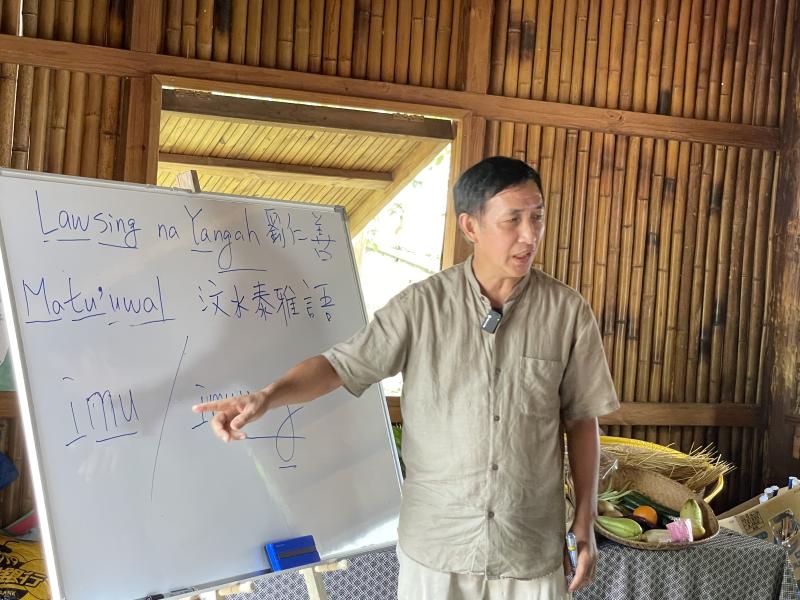 Lawsing na Yangah 劉仁善
Matu'uwal 汶水泰雅語
imu /